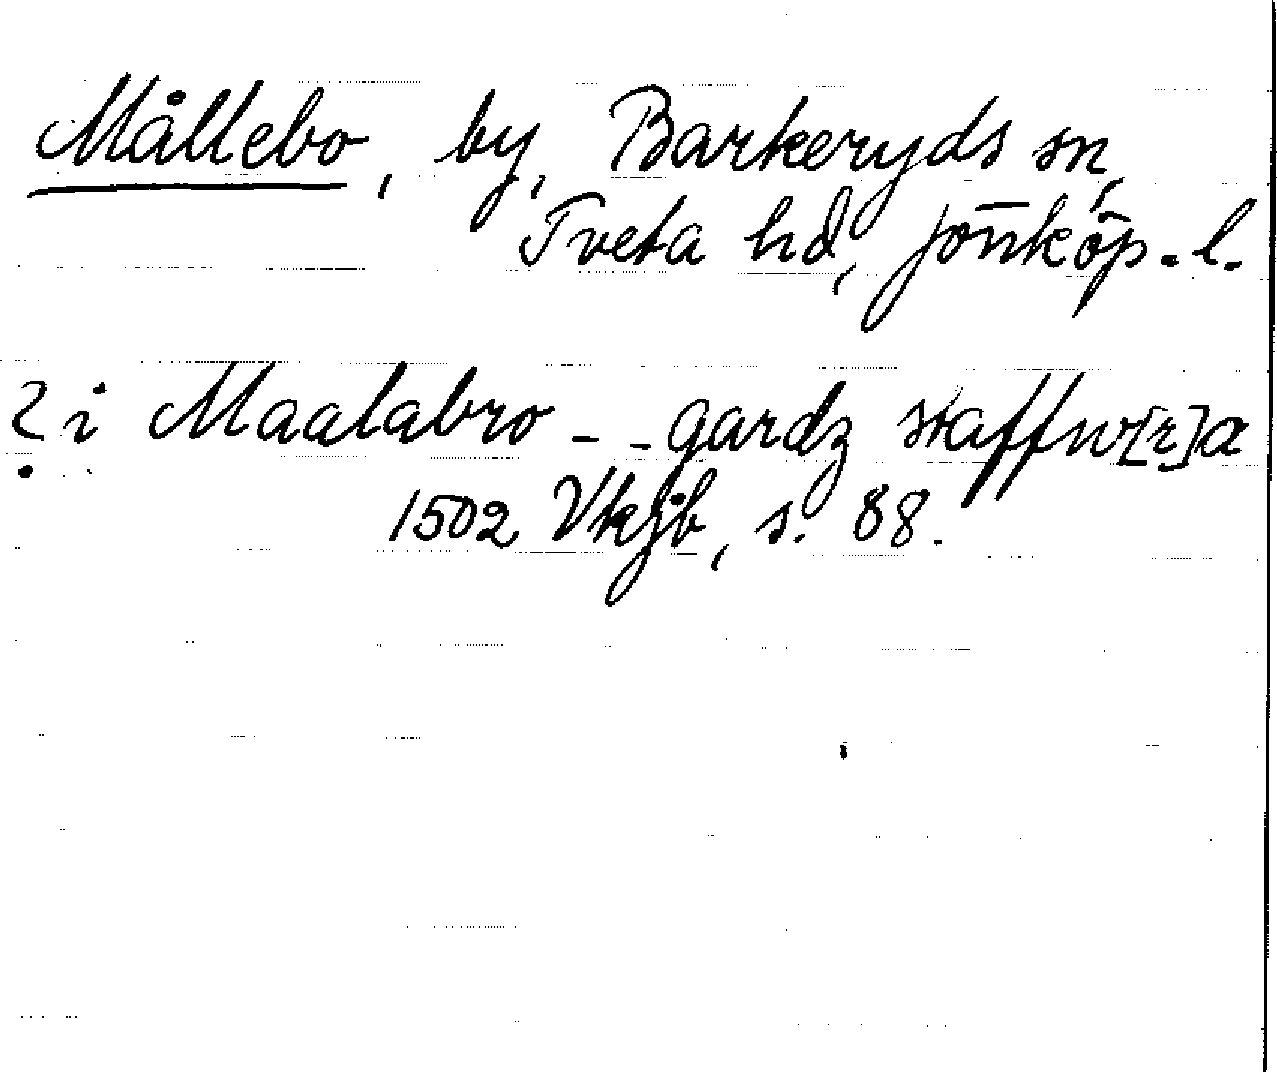 Mållebo, by, Barkeryds sn,
Tveta hd, Jönköp.l.
? i Maalabro - - gardz staffw[r]a
1502 Vkjb, s. 88.